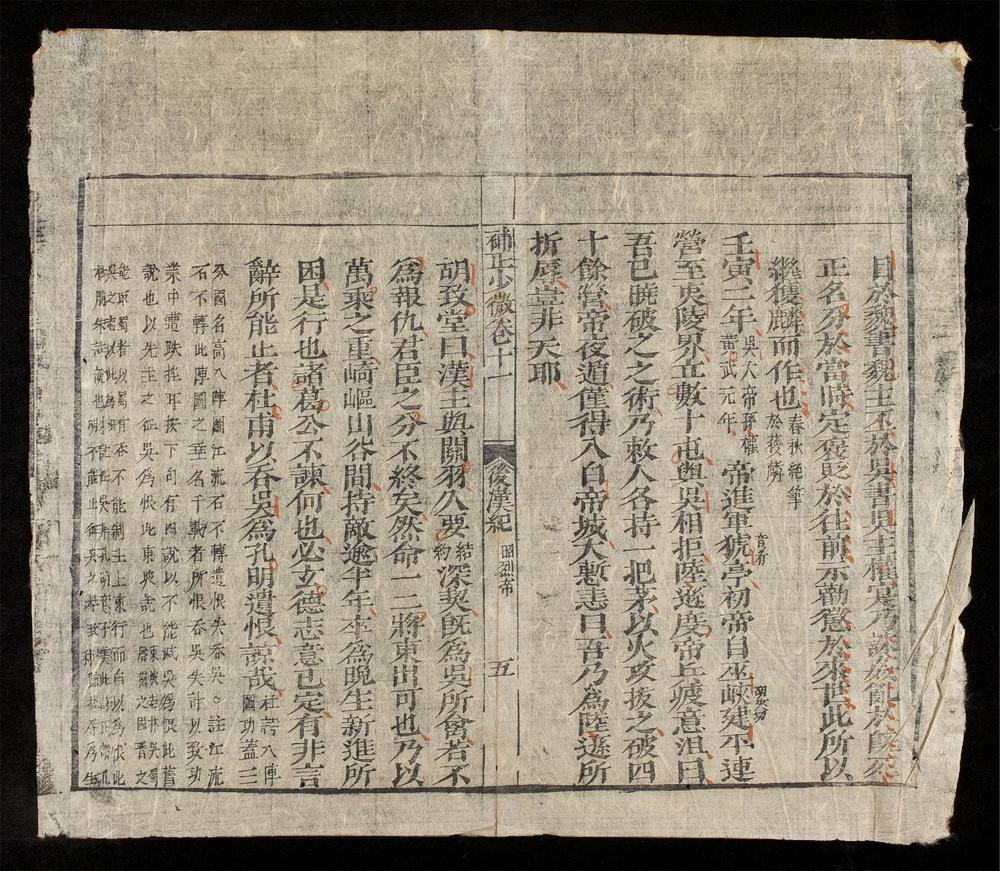 目於魏書魏主丕於吳書吳主權寔乃誅奸亂於既死
正名分於當時定褒貶於往前示勸懲於來世此所以
繼獲麟而作也春秋絕筆於獲麟
壬寅二年吳大帝孫權黃武元年帝進軍猇音肴亭初帝自巫峽建平連
營至夷陵界立數十屯與吳相拒陸遜度帝丘疲意沮曰
吾已曉破之之術乃敕人各持一把茅以火攻拔之破四
十餘營帝夜遁僅得入白帝城大慙恚曰吾乃為陸遜所
折辱豈非天耶
補正少微卷十一
後漢紀
昭烈帝
五
胡致堂曰漢主與關羽久要結約深契旣為吳所會若不
為報仇君臣之分不終矣然命一二將東出可也乃以
萬乘之重崎嶇山谷間持敵逾半年卒為晚生新進所
困是行也諸葛公不諫何也必玄德志意已定有非言
辭所能止者杜甫以吞吳為孔明遺恨諒哉杜詩八陣圖功蓋三
分國名高八陣圖江流石不轉遺恨失吞吳○註江流
石不轉此陣圖之垂名千載者所恨吞吳失計以致功
業中遭跌挫耳按下句有四說以不能滅吳為恨此舊
說也以先主之征吳為恨此東坡說也